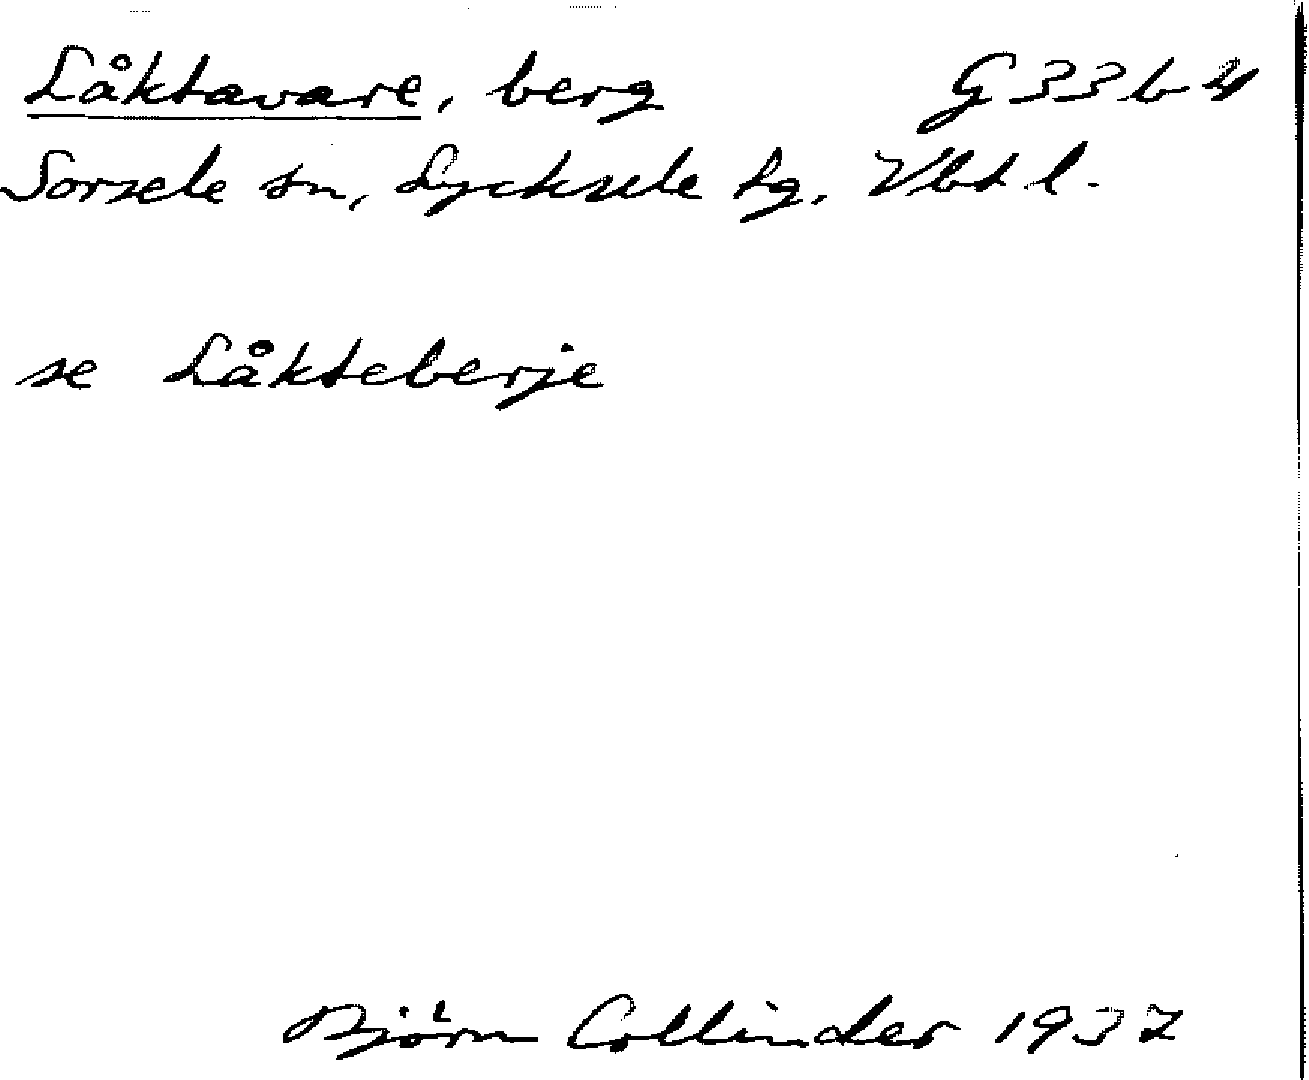 Låktavare, berg G 33 b 4
Sorsele sn, Lycksele lg. Vbt l.
se Låkteberje
Björn Collinder 1937